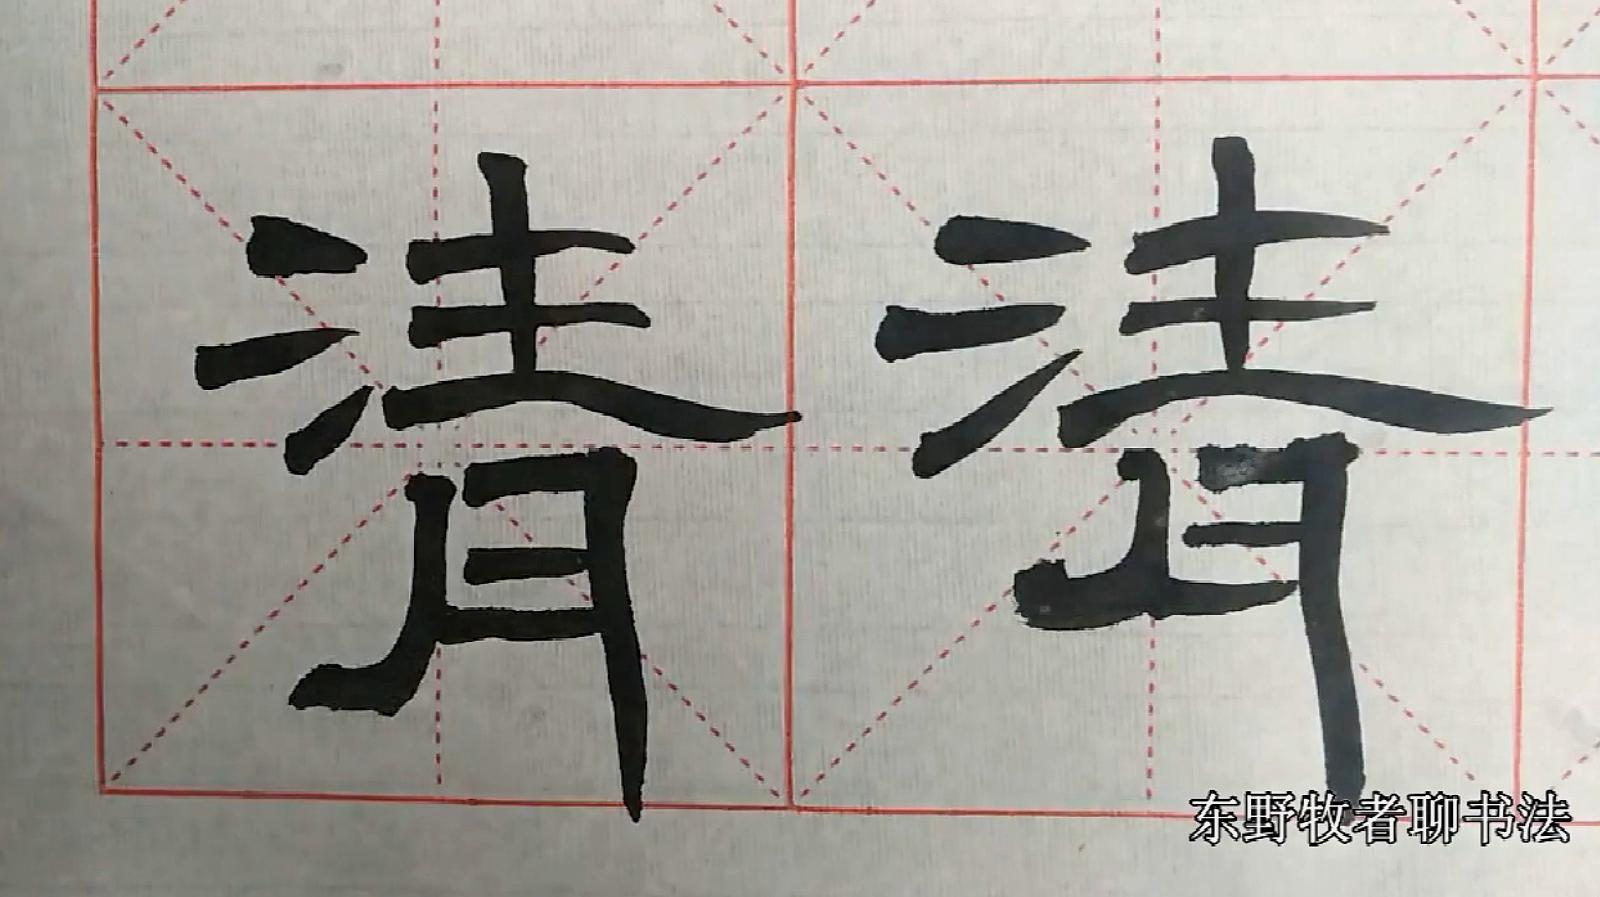 清清
东野牧者聊书法